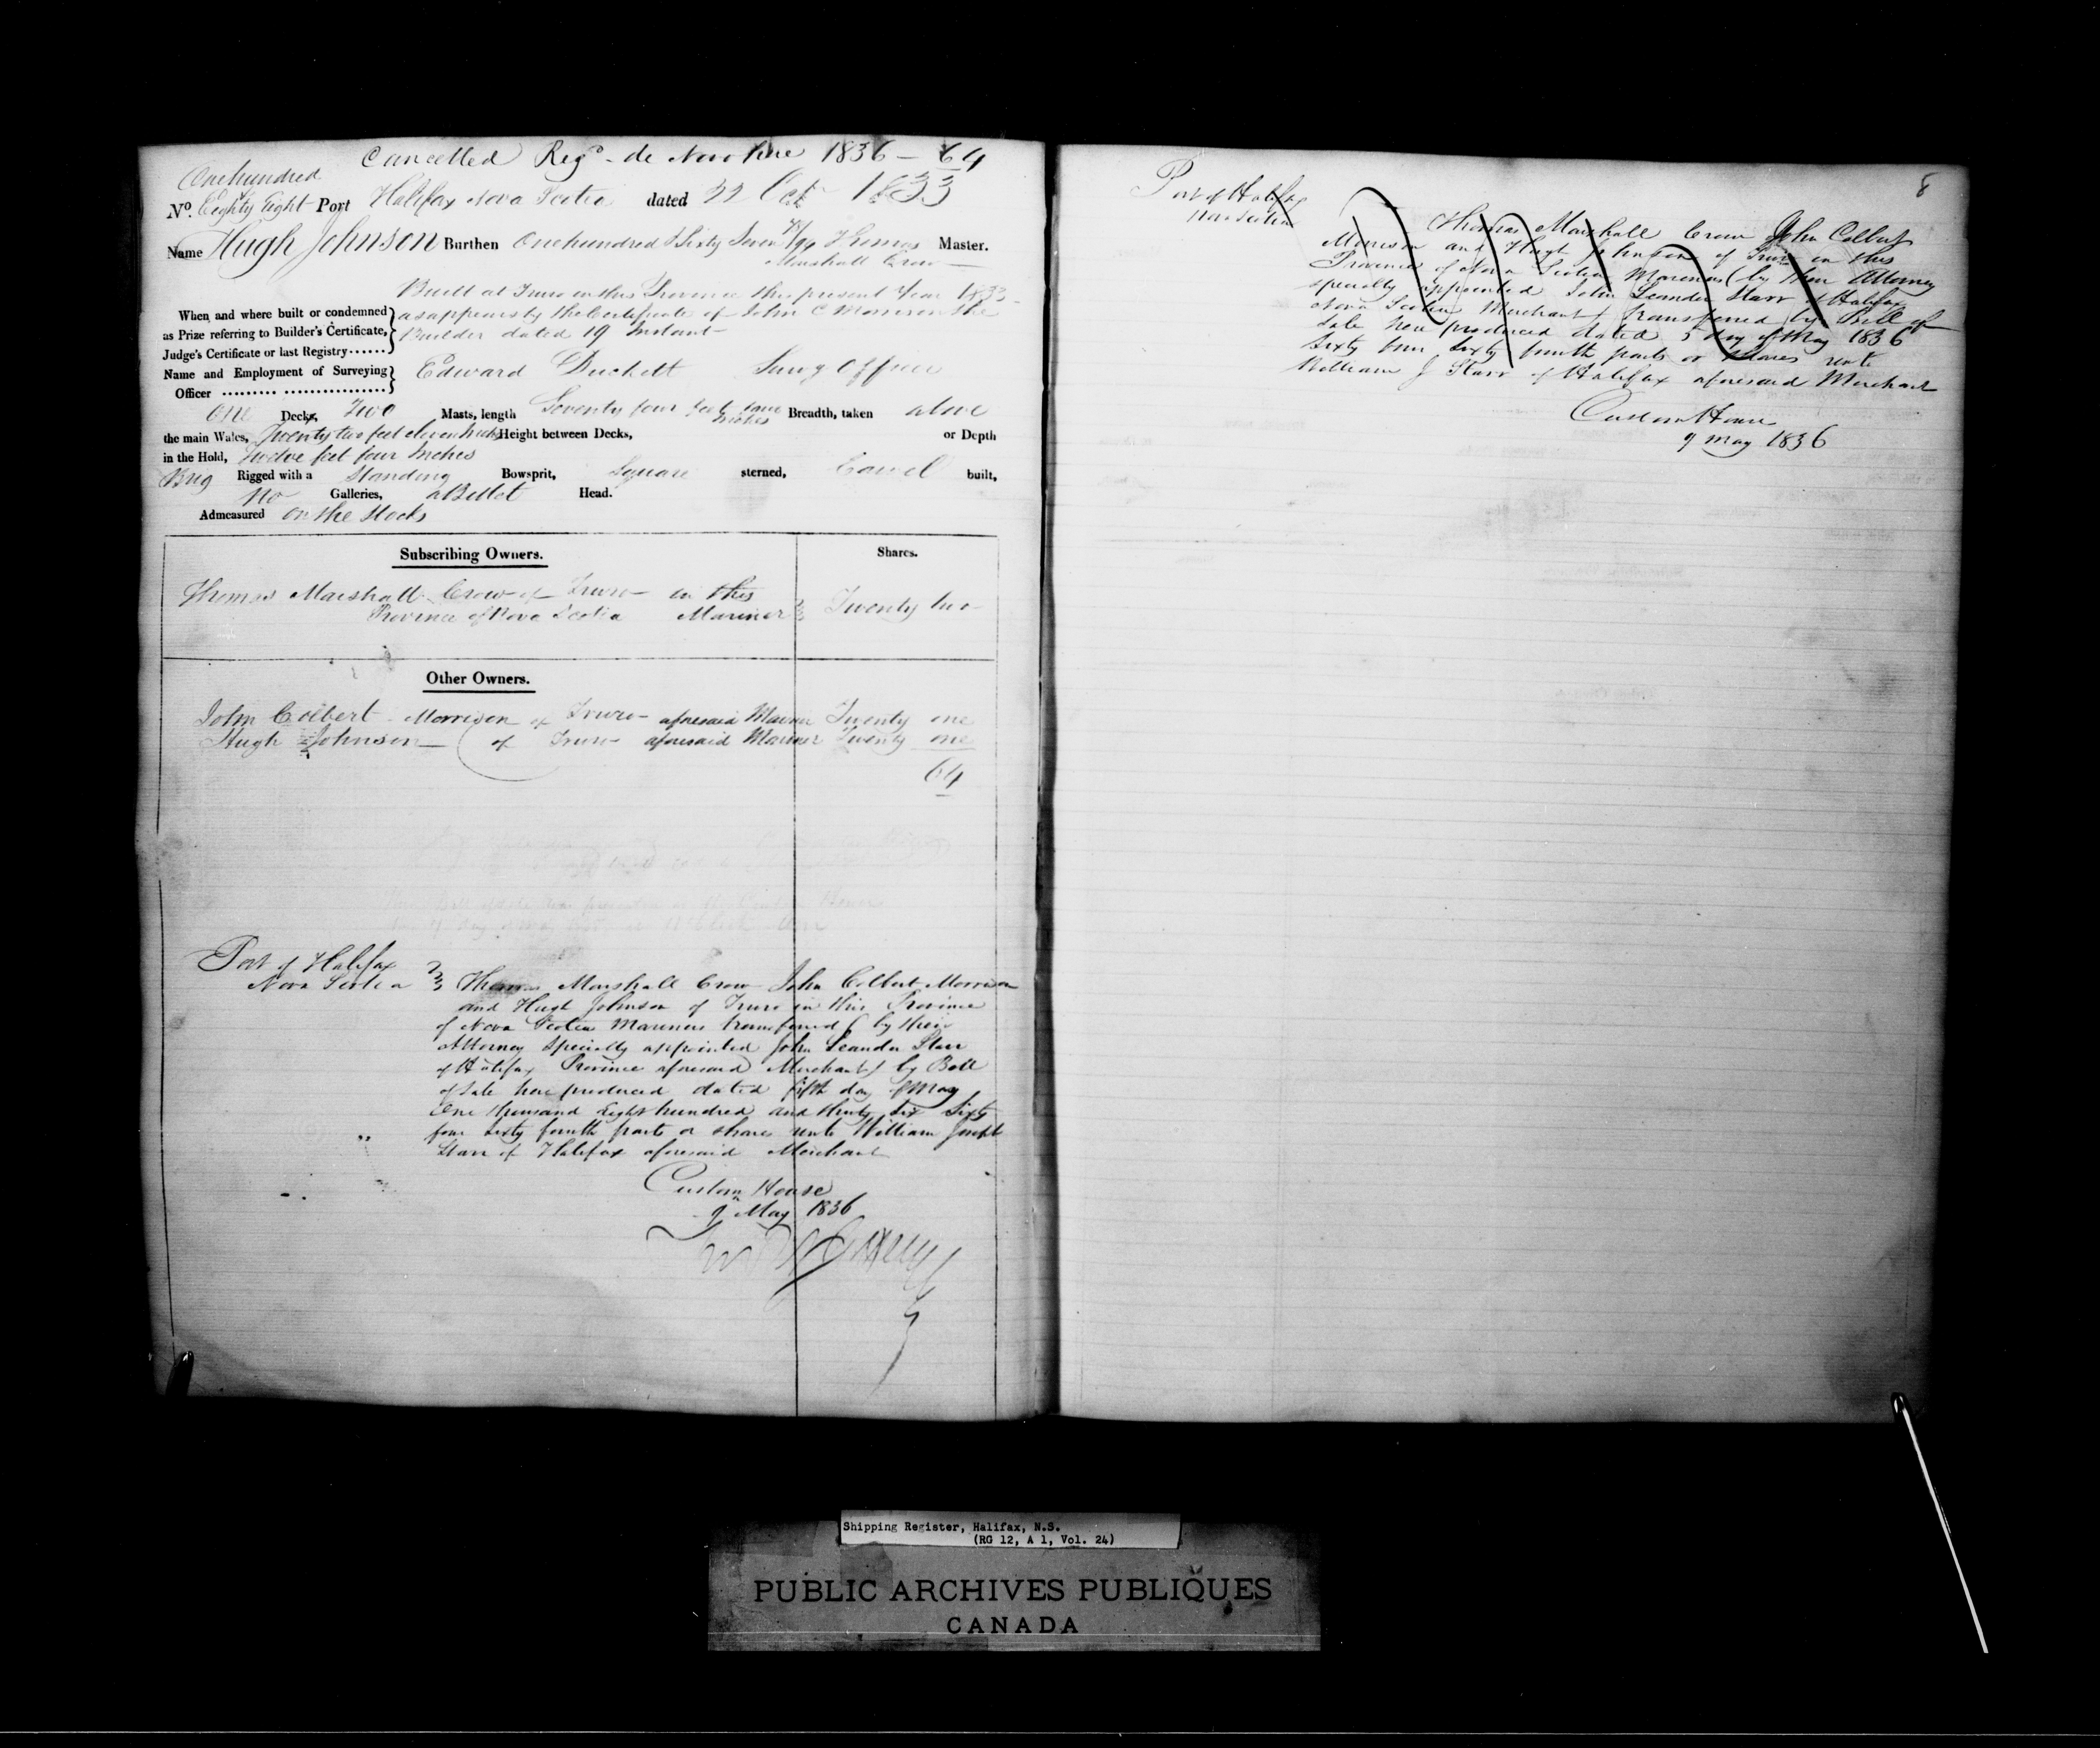 Cancelled Regd. de Novo here 1836 – 64
One hundred
No. Eighty Eight Port Halifax Nova Scotia dated 22 Oct 1833
Name Hugh Johnson Burthen One hundred & Sixty Seven /94 Thomas Master.
Marshall Crow
Built at Truro in this Province the present Year 1833
When and where built or condemned } as appears by the Certificate of John C Morrison the
as Prize referring to Builder's Certificate, } Builder dated 19 Instant
Judge's Certificate or last Registry...... }
Name and Employment of Surveying } Edward Duckett Surv'g Officer
Officer .......... ................. }
One Decks, Two Masts, length Seventy four feet Breadth, taken above
inches
the main Wales, Twenty two feet eleven Inches Height between Decks, or Depth
in the Hold, Twelve feet four Inches
Brig Rigged with a Standing Bowsprit, Square sterned, Carvel built,
No Galleries, a Billet Head.
Admeasured On the Stocks
Subscribing Owners. Shares.
Thomas Marshall Crow of Truro in this
Province of Nova Scotia Mariner Twenty two
Other Owners.
John Colbert Morrison of Truro aforesaid Mariner Twenty one
Hugh Johnson of Truro aforesaid Mariner Twenty one
64
Port of Halifax
Nova Scotia } Thomas Marshall Crow John Colbert Morrison
and Hugh Johnson of Truro in this Province
of Nova Scotia Mariners transferred (by their
Attorney specially appointed John Leander Starr
of Halifax Province aforesaid Merchant) by Bill
of Sale here produced dated fifth day of May
One thousand Eight hundred and thirty six Sixty
four sixty fourth parts or shares unto William Joseph
Starr of Halifax aforesaid Merchant
Custom House
9 May 1836
8
Port of Halifax
Nova Scotia
Thomas Marshall Crow John Colbert
Morrison and Hugh Johnson of Truro in this
Province of Nova Scotia Mariners (by their Attorney
specially appointed John Leander Starr of Halifax
Nova Scotia Merchant) transferred by Bill of
Sale here produced dated 5 day of May 1836
Sixty four sixty fourth parts or shares unto
William J Starr of Halifax aforesaid Merchant
Custom House
9 May 1836
Shipping Register, Halifax, N.S.
(RG 12, A 1, Vol. 24)
PUBLIC ARCHIVES PUBLIQUES
CANADA